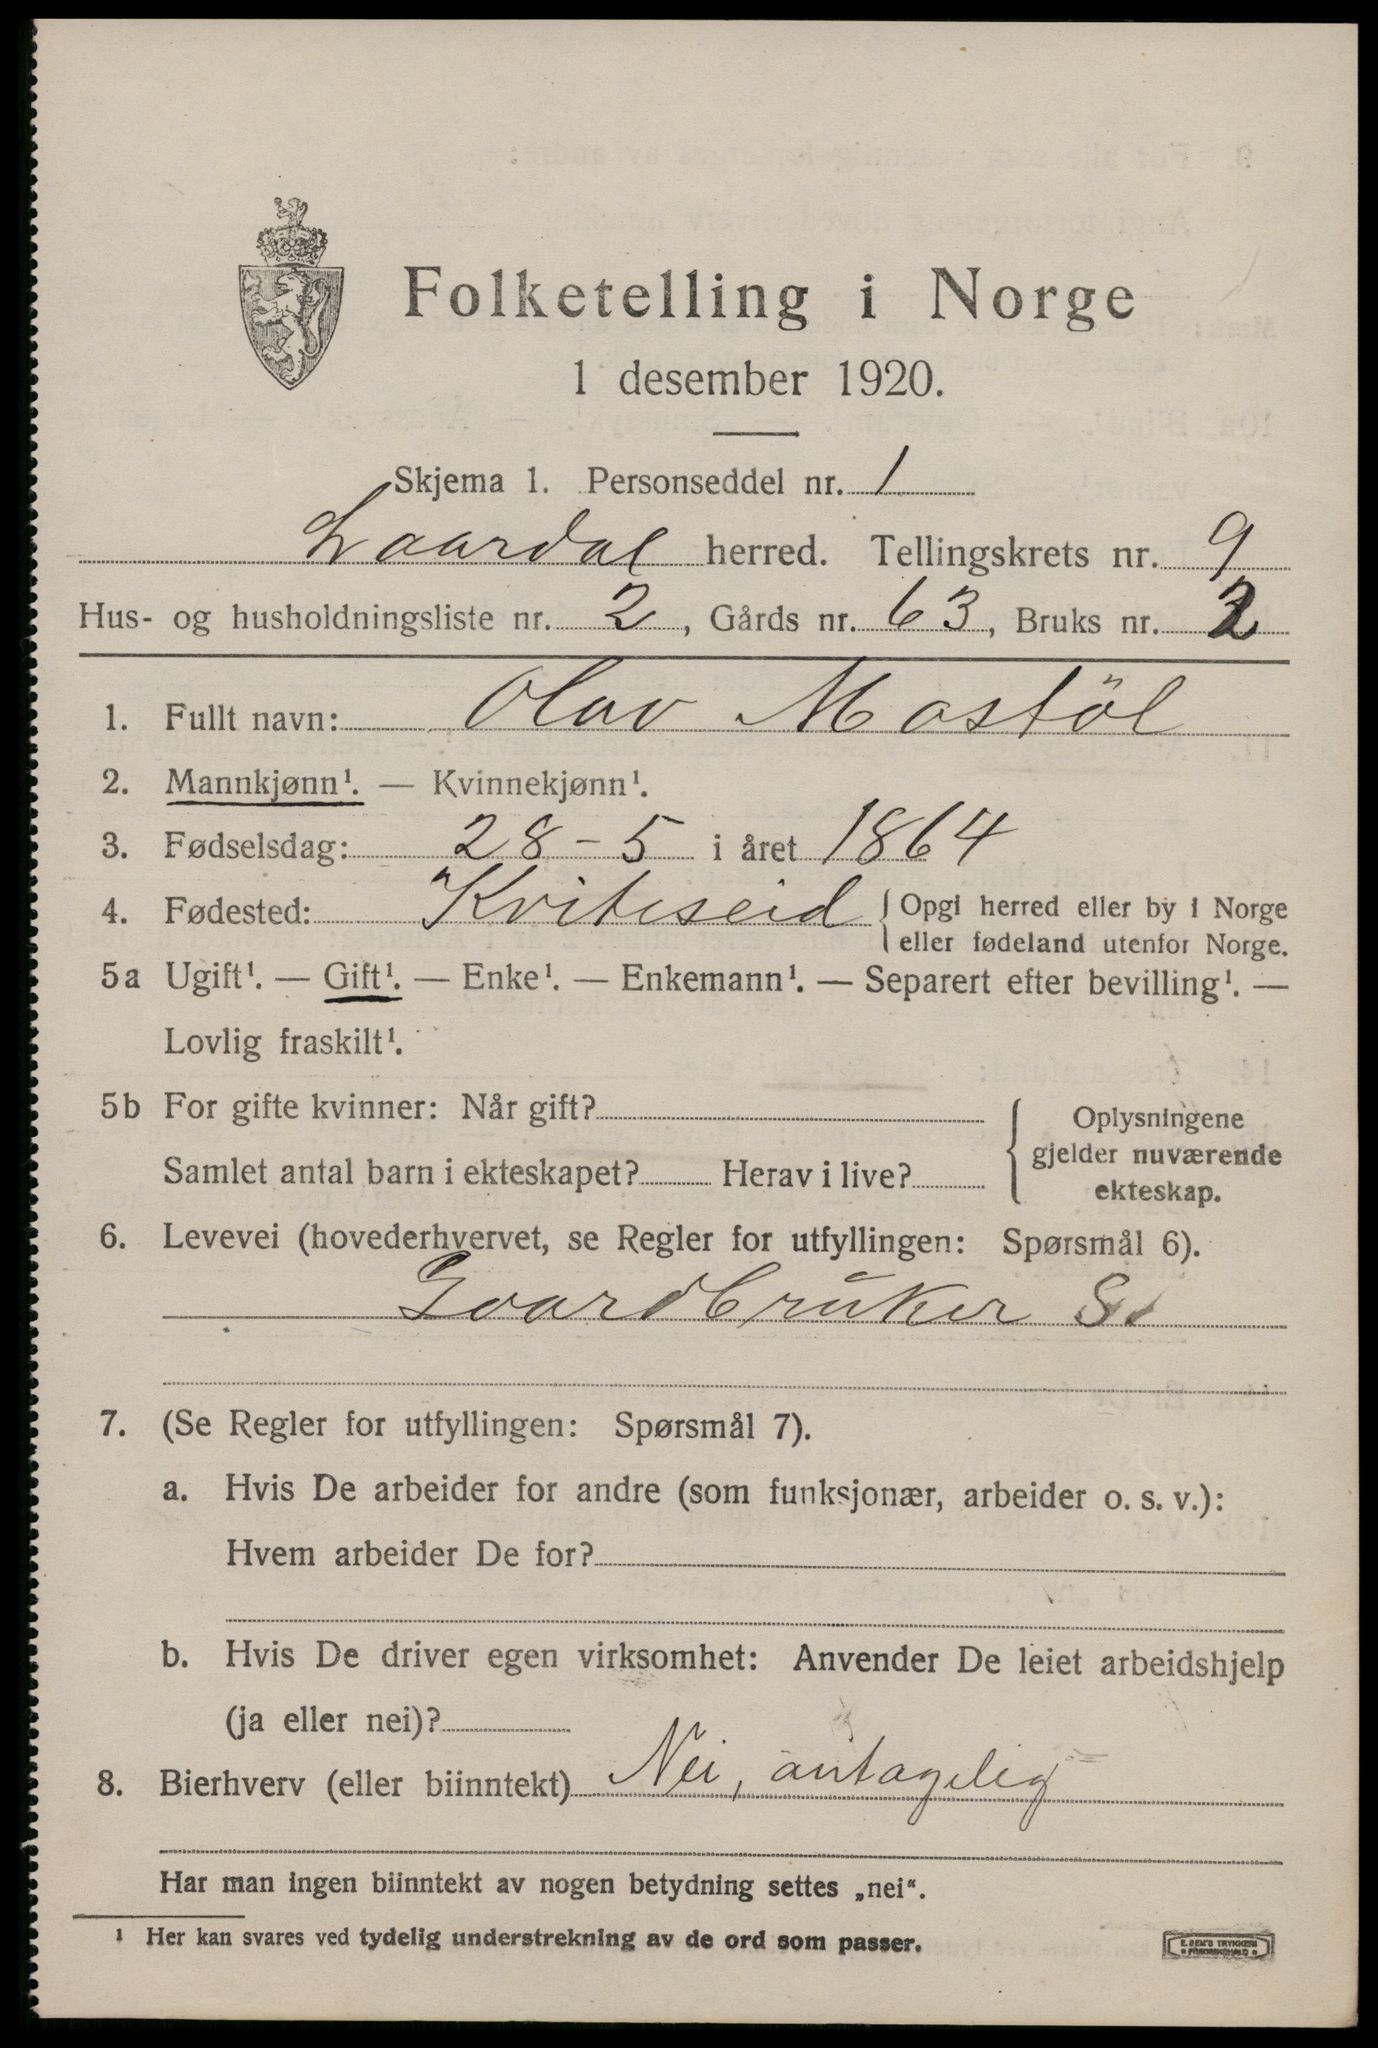 Folketelling i Norge
1 desember 1920.
Skjema 1. Personseddel nr. 1
Laardal herred. Tellingskrets nr. 9
Hus- og husholdningsliste nr. 2, Gårds nr. 63, Bruks nr. 2
1. Fullt navn: Olav Mostöl
2. Mannkjønn¹. — Kvinnekjønn¹.
3. Fødselsdag: 28-5 i året 1864
4. Fødested: Kviteseid { Opgi herred eller by i Norge
eller fødeland utenfor Norge.
5a Ugift¹. — Gift¹. — Enke¹. — Enkemann¹. — Separert efter bevilling¹. —
Lovlig fraskilt¹.
5b For gifte kvinner: Når gift? { Oplysningene
gjelder nuværende
Samlet antal barn i ekteskapet? Herav i live? ekteskap.
6. Levevei (hovederhvervet, se Regler for utfyllingen: Spørsmål 6).
Gaardbruker S.
7. (Se Regler for utfyllingen: Spørsmål 7).
a. Hvis De arbeider for andre (som funksjonær, arbeider o. s. v.):
Hvem arbeider De for?
b. Hvis De driver egen virksomhet: Anvender De leiet arbeidshjelp
(ja eller nei)?
8. Bierhverv (eller biinntekt) Nei, antagelig
Har man ingen biinntekt av nogen betydning settes „nei“.
¹ Her kan svares ved tydelig understrekning av de ord som passer.
E. SEM'S TRYKKERI
FREDRIKSHALD